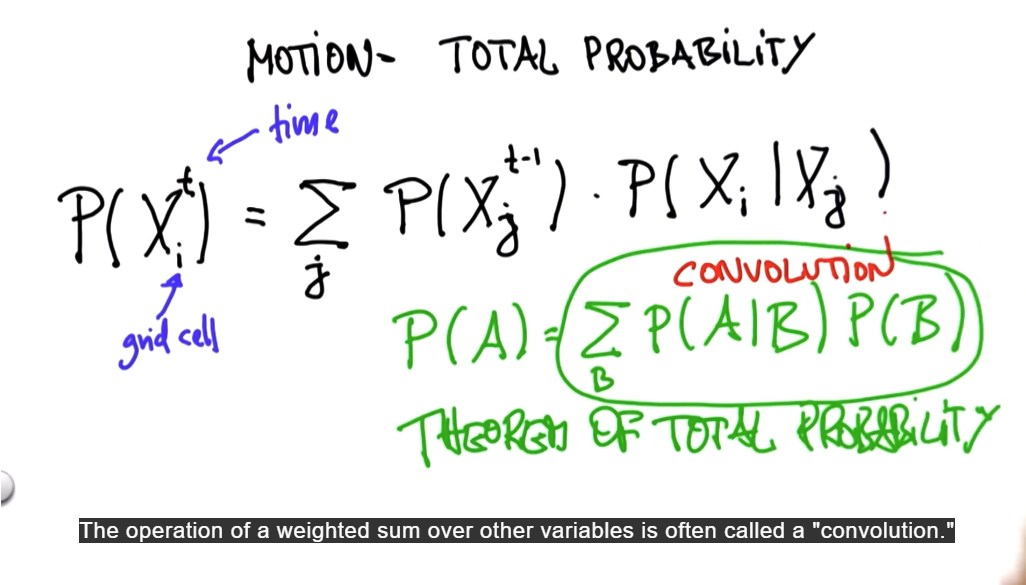 MOTION- TOTAL PROBABILITY
time
P(X_i^t) = Σ_j P(X_j^{t-1}) · P(X_i | X_j)
grid cell
CONVOLUTION
P(A) = Σ_B P(A|B) P(B)
THEOREM OF TOTAL PROBABILITY
The operation of a weighted sum over other variables is often called a "convolution."